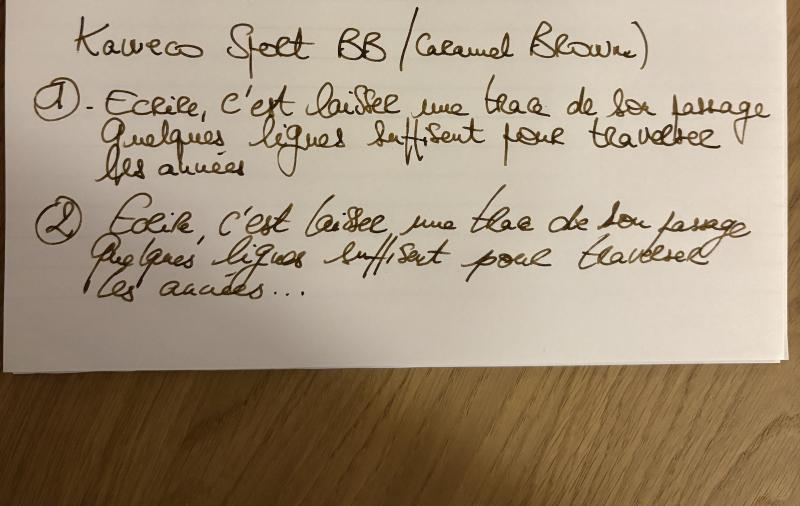 Kaweco Sport BB / (Caramel Brown)
① - Ecrire, c'est laisser une trace de son passage
Quelques lignes suffisent pour traverser
les années
② Ecrire, c'est laisser une trace de son passage
Quelques lignes suffisent pour traverser
les années...